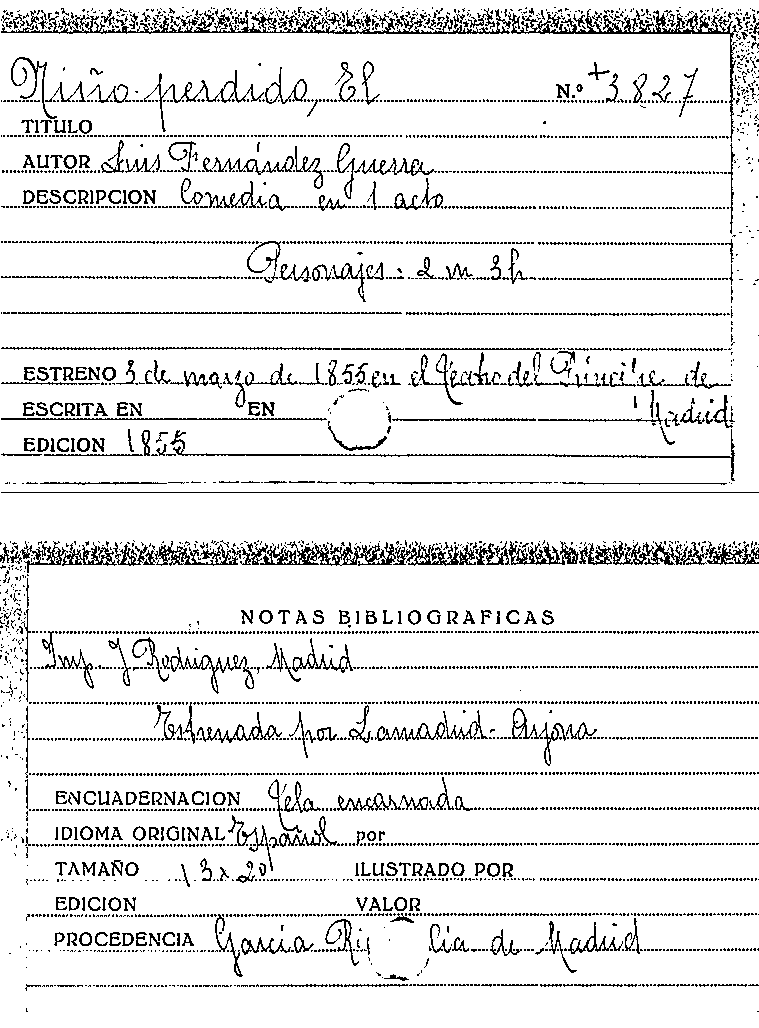 Niño perdido, El N.º +3827
TITULO
AUTOR Luis Fernández Guerra
DESCRIPCION Comedia en 1 acto
Personajes. 2 m 3h
ESTRENO 3 de marzo de 1855 en el Teatro del Príncipe de
ESCRITA EN EN Madrid
EDICION 1855
NOTAS BIBLIOGRAFICAS
Imp. J. Rodriguez, Madrid
Estrenada por Lamadrid-Arjona
ENCUADERNACION Tela encarnada
IDIOMA ORIGINAL Español por
TAMAÑO 13x20 ILUSTRADO POR
EDICION VALOR
PROCEDENCIA García de Madrid